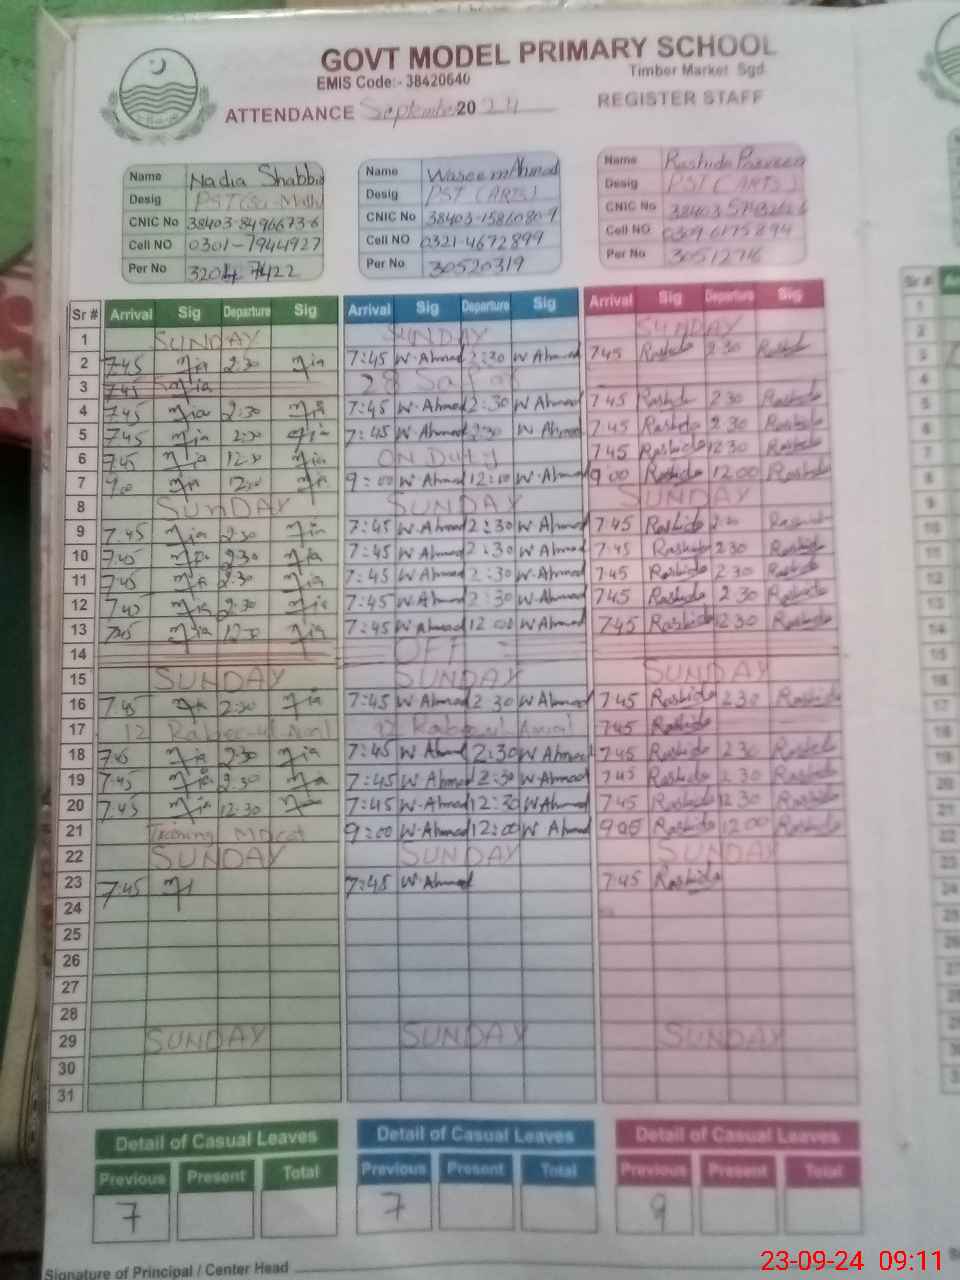 GOVT MODEL PRIMARY SCHOOL
EMIS Code:- 38420640 Timber Market Sgd
ATTENDANCE September 2024 REGISTER STAFF
Name Nadia Shabbir Name Waseem Ahmad Name Rashida Parveen
Desig PST (Sci-Math) Desig PST (ARTS) Desig PST (ARTS)
CNIC No CNIC No CNIC No
Cell NO 0301-7944927 Cell NO 0321-4672899 Cell NO 0309 6175894
Per No Per No 30520319 Per No 30512716
Sr # Arrival Sig Departure Sig Arrival Sig Departure Sig Arrival Sig Departure Sig
1 SUNDAY SUNDAY SUNDAY
2 7:45 2:30 7:45 W.Ahmad 2:30 W Ahmad 745 Rashida 2 30 Rashida
3 7:45 28 Safar
4 7:45 2:30 7:45 W.Ahmad 2:30 W Ahmad 7 45 Rashida 2 30 Rashida
5 7:45 2:30 7:45 W.Ahmad 2:30 W Ahmad 7 45 Rashida 2.30 Rashida
6 7:45 12:30 ON Duty 7 45 Rashida 12 30 Rashida
7 9:00 12:00 9:00 W Ahmad 12:00 W.Ahmad 9 00 Rashida 12 00 Rashida
8 SUNDAY SUNDAY SUNDAY
9 7.45 2:30 7:45 W Ahmad 2:30 W Ahmad 7 45 Rashida Rashida
10 7:45 2:30 7:45 W Ahmad 2:30 W Ahmad 7.45 Rashida 2 30 Rashida
11 7:45 2:30 7:45 W Ahmad 2:30 W Ahmad 745 Rashida 2 30 Rashida
12 7:45 2:30 7:45 W Ahmad 2:30 W.Ahmad 745 Rashida 2 30 Rashida
13 7:45 12:30 7:45 W Ahmad 12 00 W Ahmad 745 Rashida 12 30 Rashida
14 OFF
15 SUNDAY SUNDAY SUNDAY
16 7.45 2:30 7:45 W Ahmad 2 30 W Ahmad 7 45 Rashida 2 30 Rashida
17 12 Rabee-ul-Awal 12 Rabee ul Awal 7 45 Rashida
18 7:45 2:30 7:45 W Ahmad 2:30 W Ahmad 7 45 Rashida 2 30 Rashida
19 7:45 2:30 7:45 W Ahmad 2:30 W Ahmad 7 45 Rashida 2.30 Rashida
20 7.45 12:30 7:45 W-Ahmad 12:30 W Ahmad 7 45 Rashida 12 30 Rashida
21 Training 9:00 W-Ahmad 12:00 W Ahmad 9 00 Rashida 12 00 Rashida
22 SUNDAY SUNDAY SUNDAY
23 7:45 7:45 W.Ahmad 7 45 Rashida
24
25
26
27
28
29 SUNDAY SUNDAY SUNDAY
30
31
Detail of Casual Leaves Detail of Casual Leaves Detail of Casual Leaves
Previous Present Total Previous Present Total Previous Present Total
7 7 9
Signature of Principal / Center Head
23-09-24 09:11